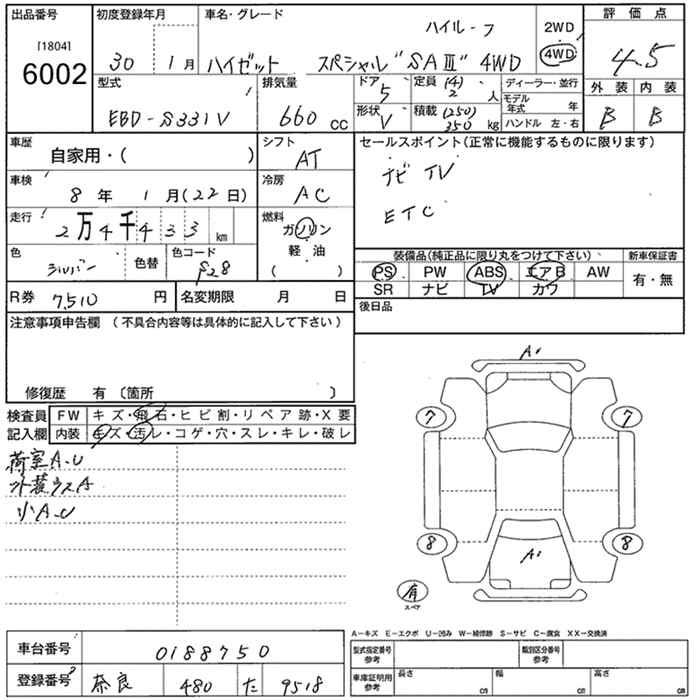 出品番号 [1804] 6002
初度登録年月 30 1月
車名・グレード ハイルーフ
ハイゼット スペシャル"SAⅢ" 4WD
2WD
4WD
評価点 4.5
外装 内装
B B
型式 EBD-S331V
排気量 660 cc
ドア 5
定員 (4) 2 人
形状 V
積載 (250) 350 kg
ディーラー・並行
モデル年式 年
ハンドル 左・右
車歴 自家用・( )
シフト AT
車検 8年 1月(22日)
冷房 AC
走行 2万4千433 km
燃料 ガソリン 軽油 ( )
色 シルバー 色替
色コード S28
R券 7,510 円
名変期限 月 日
セールスポイント(正常に機能するものに限ります)
ナビ TV
ETC
装備品(純正品に限り丸をつけて下さい)
PS PW ABS エアB AW
SR ナビ TV カワ
新車保証書 有・無
後日品
注意事項申告欄(不具合内容等は具体的に記入して下さい)
修復歴 有〔箇所 〕
検査員記入欄
FW キズ・飛石・ヒビ割・リペア跡・X要
内装 キズ・汚レ・コゲ・穴・スレ・キレ・破レ
荷室A.U
外装ウスA
小A.U
A1
7 7
8 8
A1
有
スペア
A-キズ E-エクボ U-凹み W-補修跡 S-サビ C-腐食 XX-交換済
車台番号 0188750
登録番号 奈良 480 た 9518
型式指定番号 参考
類別区分番号 参考
車庫証明用 参考
長さ cm 幅 cm 高さ cm